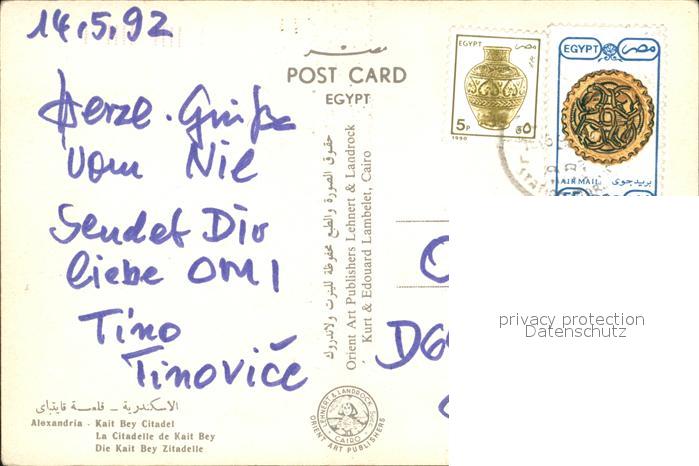 14.5.92
Herzl. Grüße
vom Nil
sendet Dir
liebe OMI
Tino
Tinoviče
الاسكندرية - قلعة قايتباى
Alexandria - Kait Bey Citadel
La Citadelle de Kait Bey
Die Kait Bey Zitadelle
مصر
POST CARD
EGYPT
حقوق الصورة والطبع محفوظة للينرت ولاندروك
Orient Art Publishers Lehnert & Landrock
Kurt & Edouard Lambelet, Cairo
LEHNERT & LANDROCK
CAIRO
ORIENT ART PUBLISHERS
EGYPT مصر
5P ٥ق
1990
EGYPT مصر
AIR MAIL بريد جوى
D6
privacy protection
Datenschutz